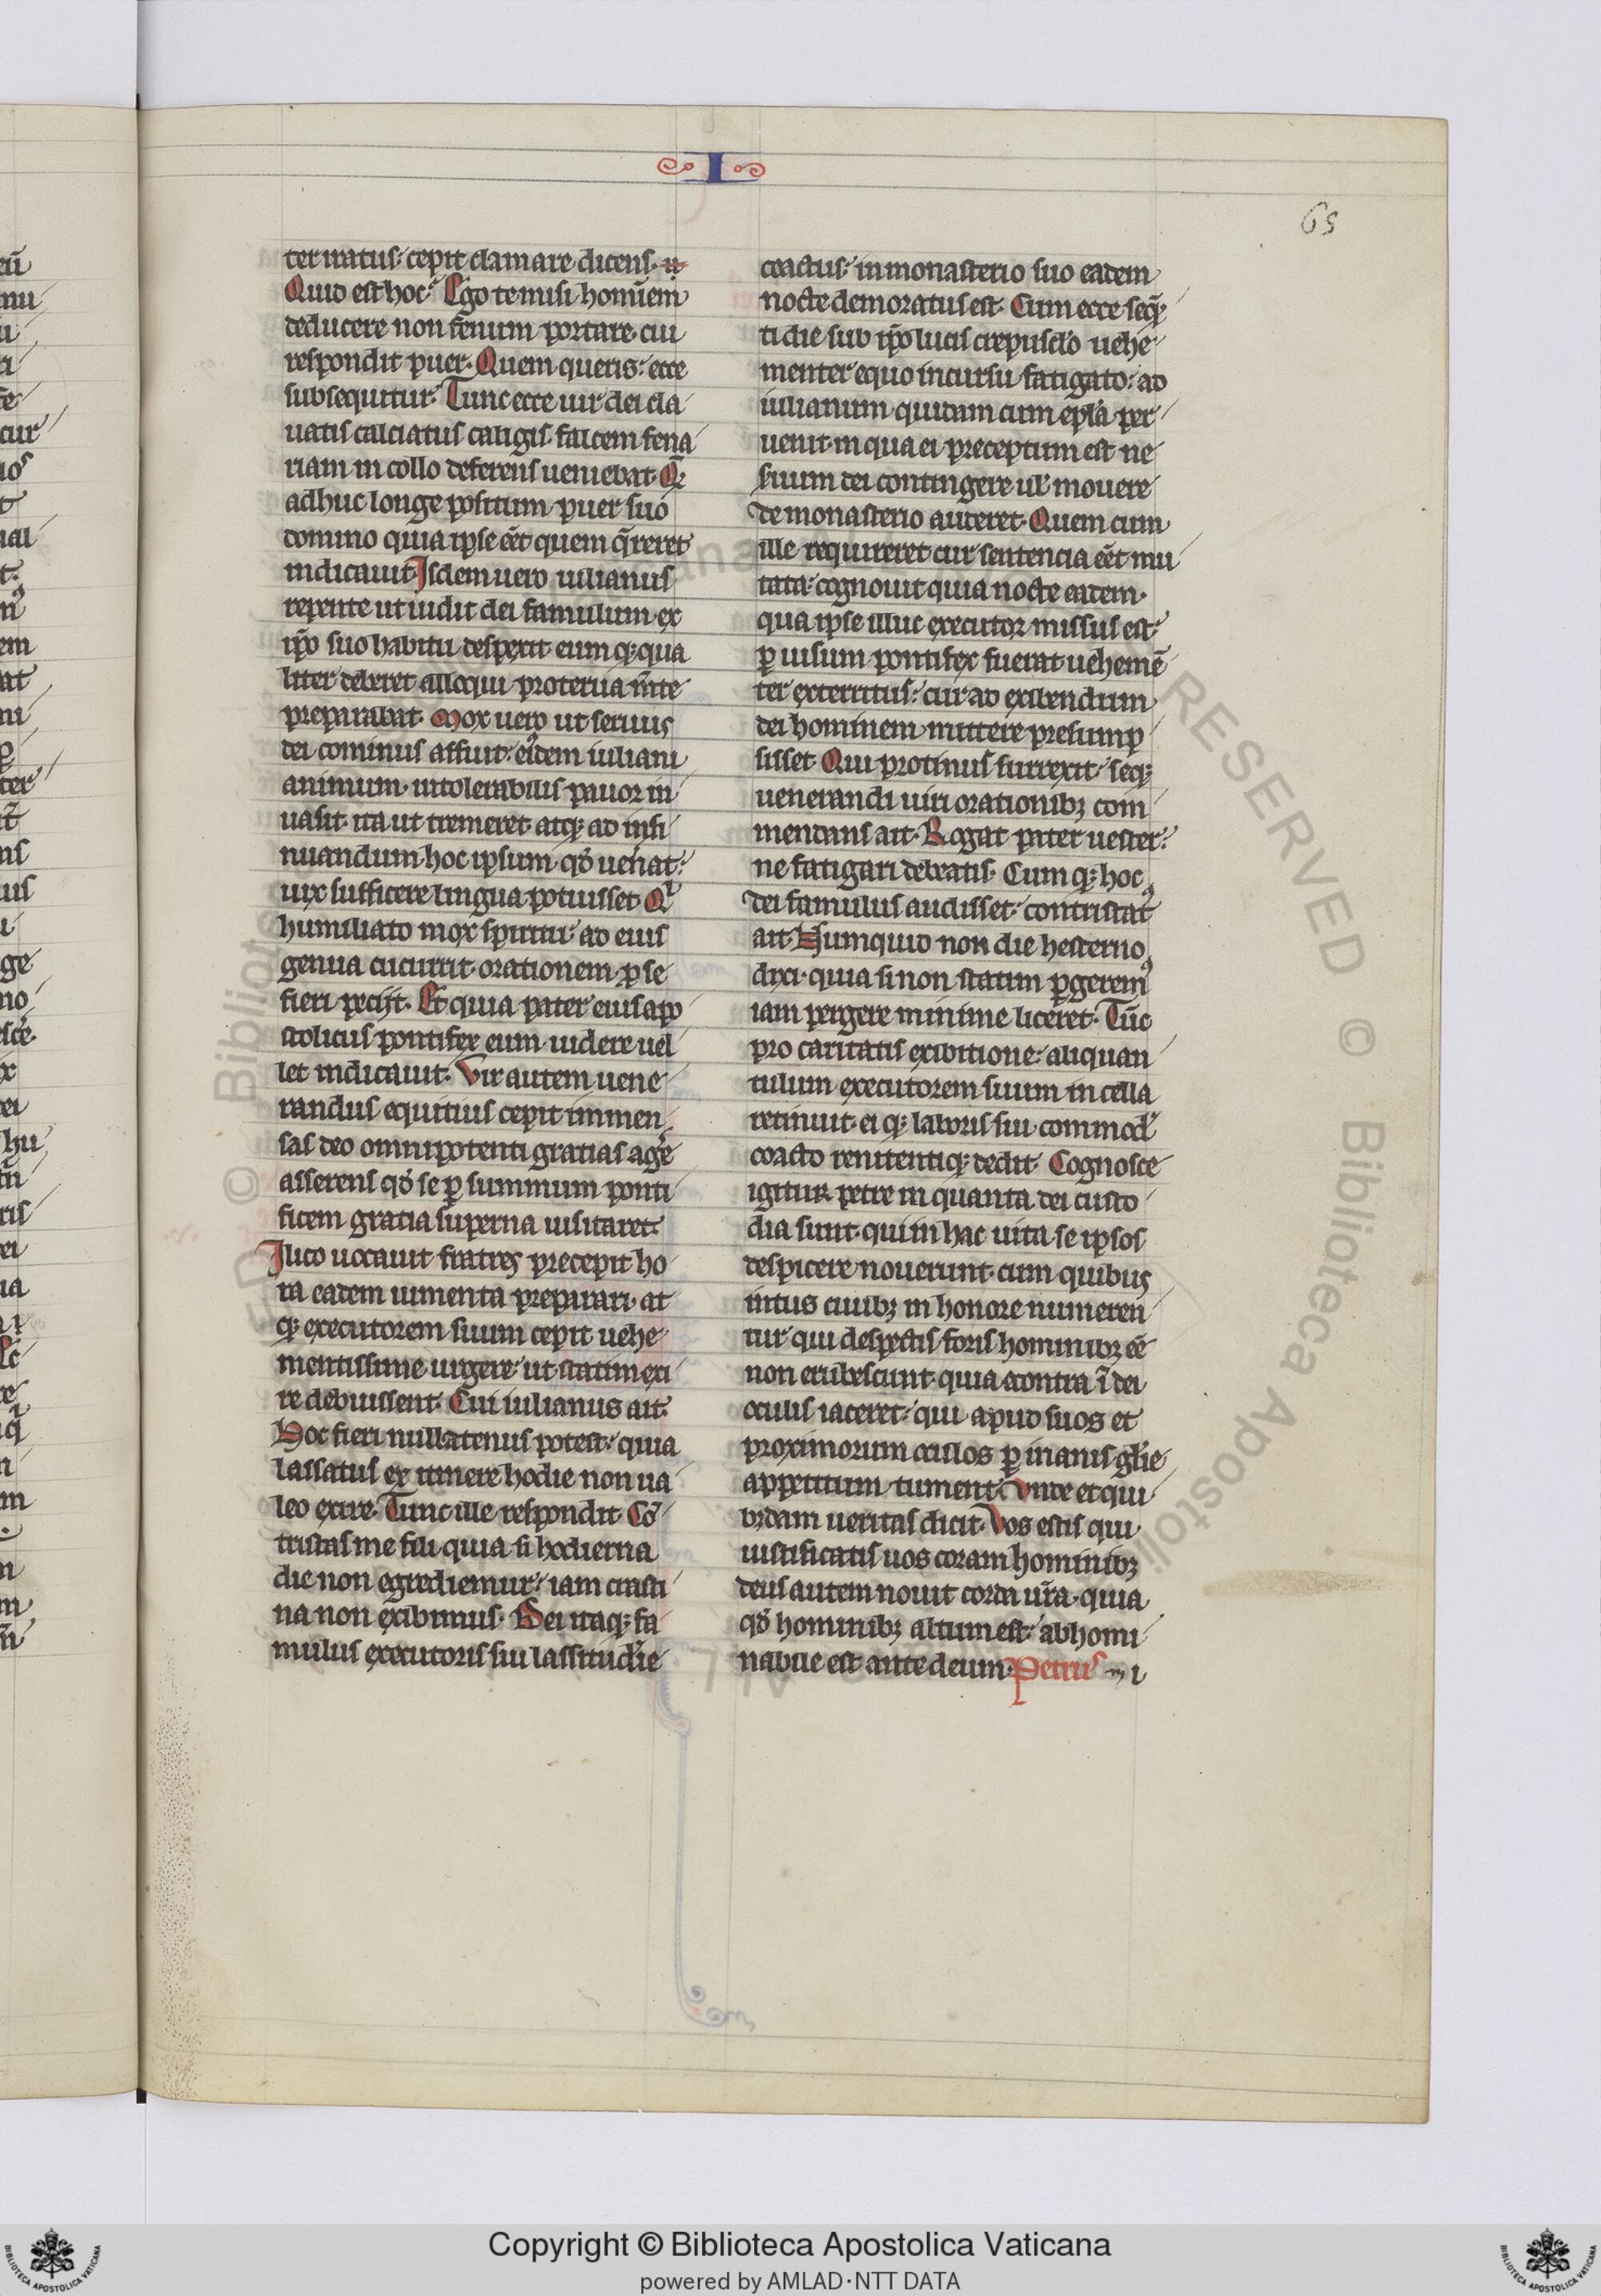 I
65
ter iratus cepit clamare dicens.
Quid est hoc? Ego te misi hominem
deducere non fenum portare. cui
respondit puer. Quem queris: ecce
subsequitur. Tunc ecce uir dei cla
uatis calciatus caligis. falcem fena
riam in collo deferens ueniebat. Q̄
adhuc longe positum puer suo
domino quia ipse eēt quem q̄reret
indicauit. Isdem uero iulianus
repente ut uidit dei famulum. ex
ip̄o suo habitu despexit eumq; qua
liter deberet alloqui proterua m̄te
preparabat. Mox uero ut seruus
dei cominus affuit. eidem iuliani
animum. intolerabilis pauor in
uasit. ita ut tremeret. atq; ad insi
nuandum hoc ipsum qd̄ uenat:
uix sufficere lingua potuisset. Qⁱ
humiliato mox spiritu. ad eius
genua cucurrit. orationem ꝓ se
fieri peciit. Et quia pater eius apo
stolicus pontifex eum uidere uel
let indicauit. Vir autem uene
randus equitius cepit immen
sas deo omnipotenti gratias age͛
asserens qd̄ se ꝑ summum ponti
ficem gratia superna uisitaret.
Ilico uocauit fratres precepit ho
ra eadem iumenta preparari. at
q; executorem suum cepit uehe
mentissime urgere. ut statim exi
re debuissent. Cui iulianus ait.
Hoc fieri nullatenus potest. quia
lassatus ex itinere hodie non ua
leo exire. Tunc ille respondit. Cō
tristas me fili quia si hodierna
die non egrediemur. iam crasti
na non exibimus. Dei itaq; fa
mulus executoris sui lassitudīe
coactus. in monasterio suo eadem
nocte demoratus est. Cum ecce seq̄
ti die sub ip̄o lucis crepusclo uehe
menter equo incursu fatigato. ad
iulianum quidam cum epl̄a per
uenit. in qua ei preceptum est ne
suum dei contingere ul̄ mouere
de monasterio auderet. Quem cum
ille requireret cur sentencia eēt mu
tata. cognouit quia nocte eadem
qua ipse illuc executor missus est.
ꝑ uisum pontifex fuerat uehemē
ter exterritus. cur ad exibendum
dei hominem mittere presump
sisset. Qui protinus surrexit. seq;
uenerandi uiri orationibꝫ com
mendans ait. Rogat pater uester.
ne fatigari debeatis. Cumq; hoc
dei famulus audisset. contristatꝰ
ait. Numquid non die hesterno
dixi. quia si non statim ꝑgeremꝰ
iam pergere minime liceret. Tūc
pro caritatis exibitione. aliquan
tulum executorem suum in cella
retinuit. eiq; laboris sui commodū
coacto renitentiq; dedit. Cognosce
igitur petre in quanta dei custo
dia sunt. qui in hac uita se ipsos
despicere nouerunt. cum quibus
intus ciuibꝫ in honore numeren
tur qui despectis foris hominibꝫ eē
non erubescunt. quia econtra ī dei
oculis iaceret. qui apud suos et
proximorum oculos ꝑ inanis glīe
appetitum tument. Vnde et qui
bꝫdam ueritas dicit. Vos estis qui
iustificatis uos coram hominibꝫ
deus autem nouit corda ur̄a. quia
qd̄ hominibꝫ altum est. abhomi
nabile est ante deum. Petrus
Copyright © Biblioteca Apostolica Vaticana
powered by AMLAD·NTT DATA